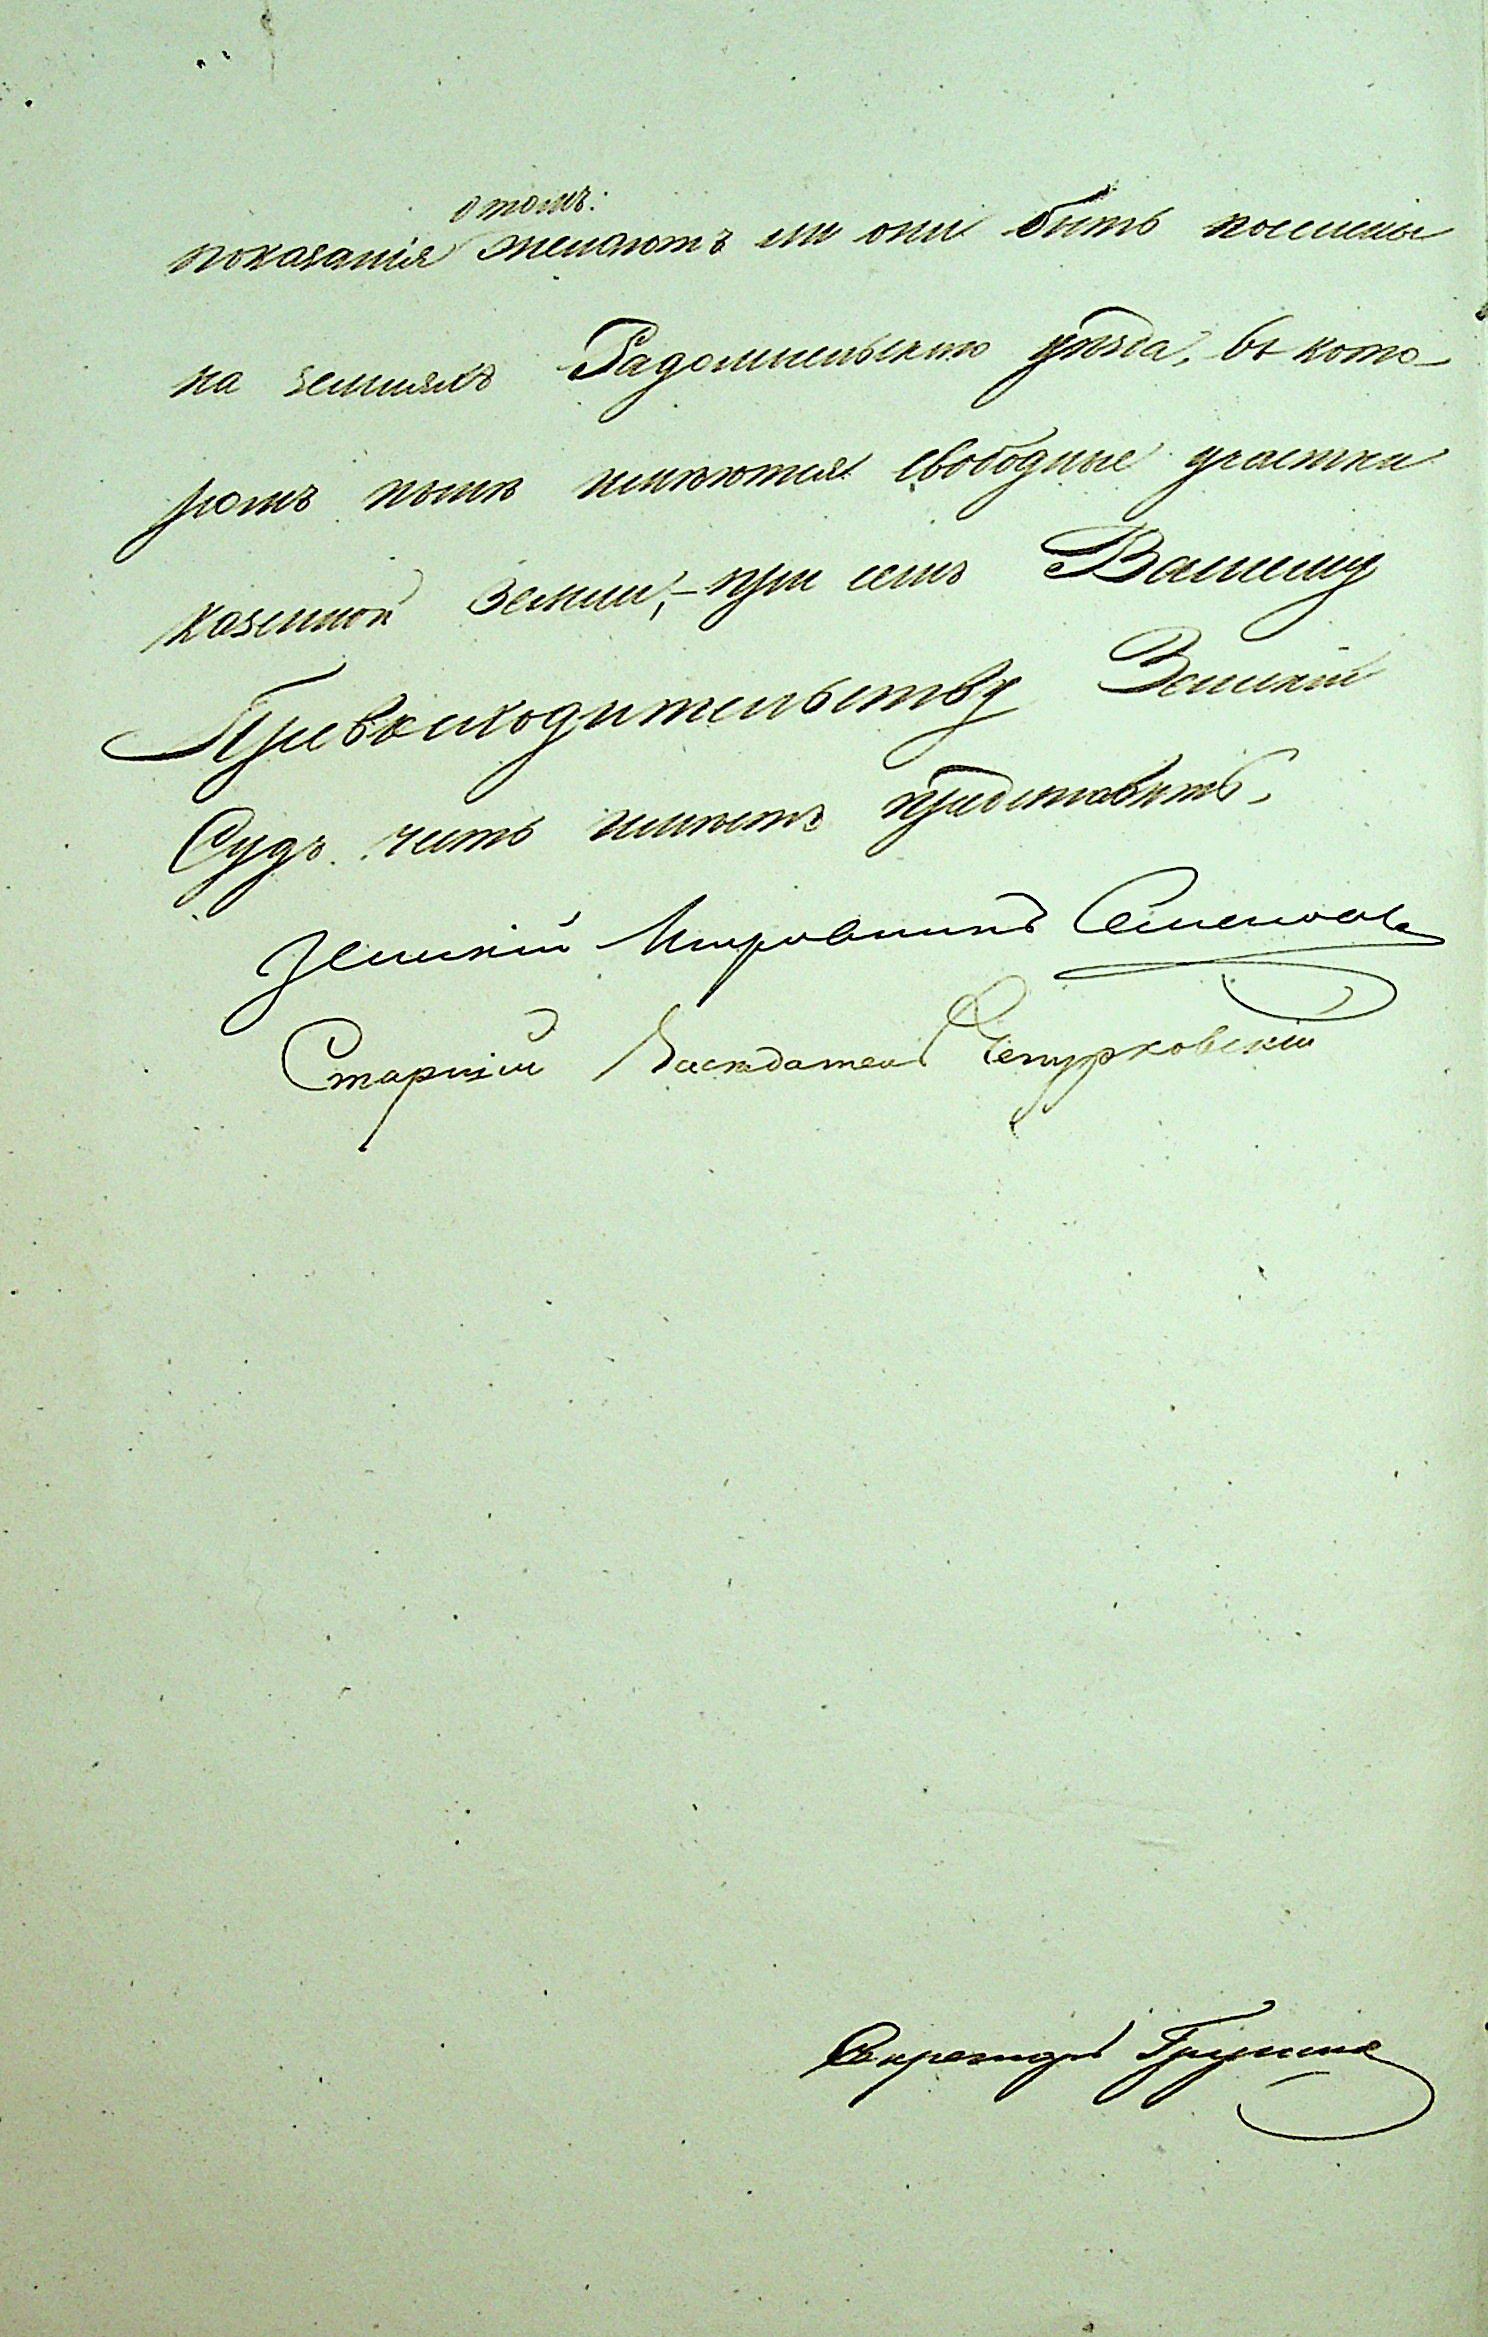 о томъ:
показанія желаютъ ли они быть поселены
на земляхъ Радомысльскаго уѣзда, въ кото-
ромъ нынѣ имѣются свободные участки
казенной земли, - при семъ Вашему
Превосходительству Земскій
Судъ честь имѣетъ представить.
Земскій Исправникъ Семеновъ
Старшій Засѣдатель Чепурковскій
Секретарь